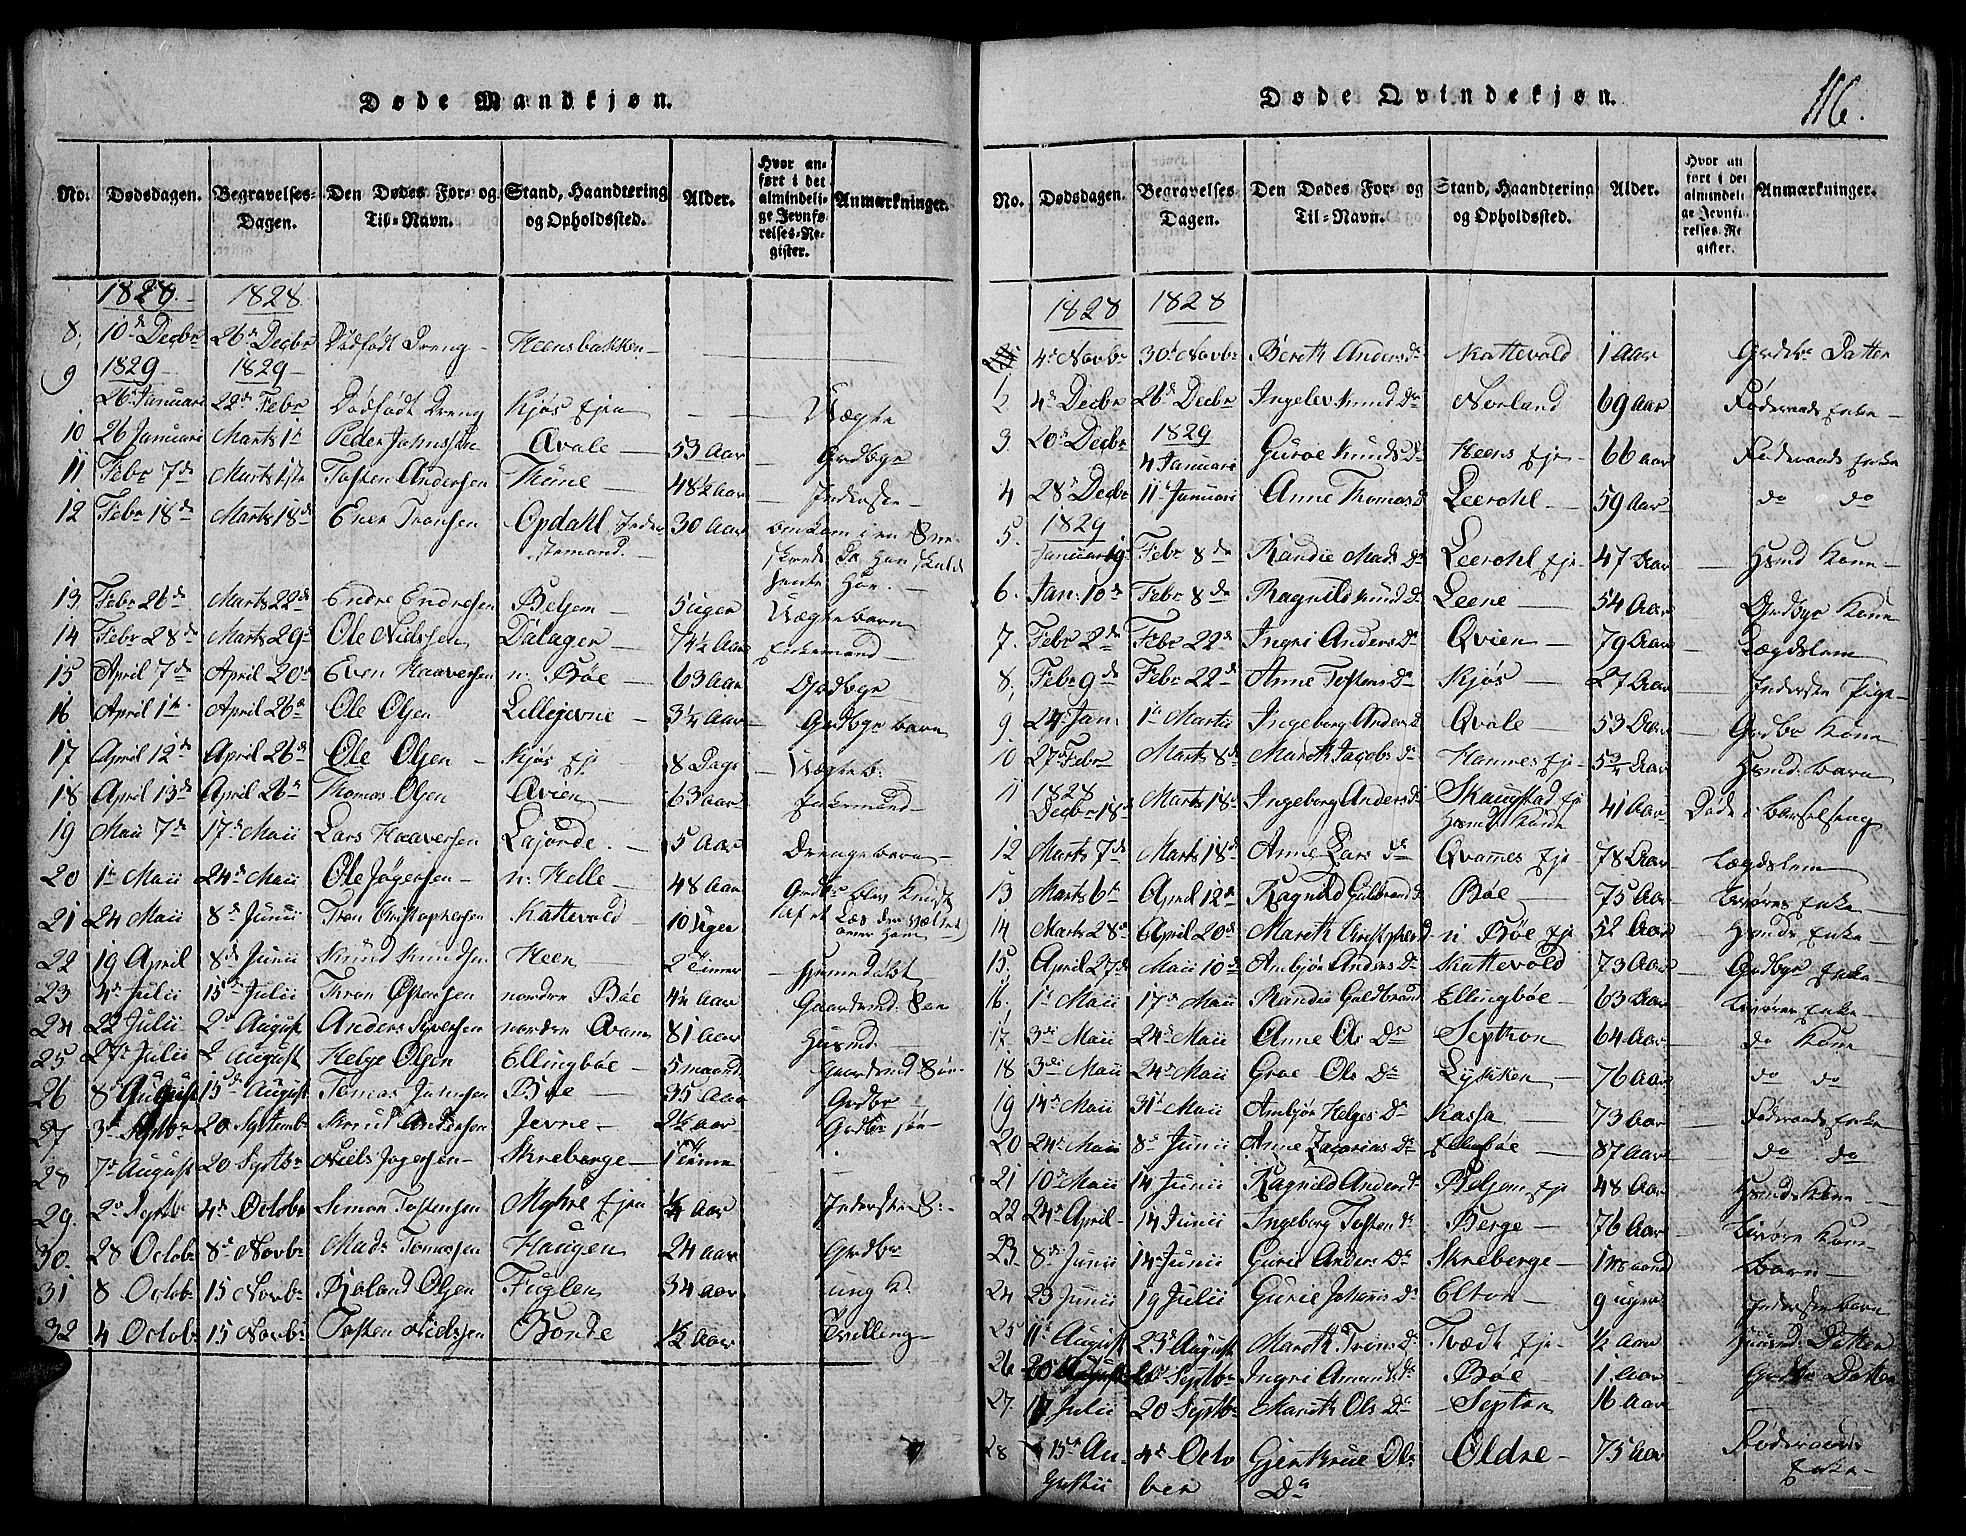 Døde Mandkjøn.
No. Dødsdagen. Begravelses-Dagen. Den Dødes For- og Til-Navn. Stand, Haandtering og Opholdssted. Alder. Hvor anført i det almindelige Jevnførelses-Register. Anmærkninger.
1828 1828
8. 10de Decbr 26de Decbr Dødfødt Dreng Heensbakken
1829 1829
9 26de Januari 22de Febr Dødfødt Dreng Kjøs Eje Uægte
10 26 Januari Marts 1te Peder Johnssen Qvale 53 Aar Grdbgr
11 Febr 7de Marts 1ste Tosten Andersen Thune 48½ Aar Inderste
12 Febr 18de Marts 18de Ener Tronsen Opdahl Inderstemand 30 Aar omkom i en Sneeskrede Da Han skulde hente Høe
13 Febr 26de Marts 22de Endre Endresen Beljem 5 uger Uægte barn
14 Febr 28de Marts 29de Ole Nielssen Dalager 74½ Aar Enkemand
15 April 7de April 20de Even Haaversen n: Bøe 63 Aar Grdbgr
16 April 1te April 26de Ole Olsen Lillejevne 3¼ Aar Grdbgr barn
17 April 12de April 26de Ole Olsen Kjøs Ej 8 Dage Uægte b.
18 April 13de April 26de Thomas Olsen Qvien 63 aar Enkemand
19 Maii 7de 17de Maii Lars Haaversen Lajorde 5 Aar Drengebarn
20 1te Maii 24de Maii Ole Jøgersen n: Helle 48 Aar Grdbr Blev knust af et Læs der væltet over Ham
21 24 Maii 8de Junii Tron Christophersen Kattevold 10 Uger
22 19 April 8de Junii Knud Knudsen Heen 2 Timer Hjemedøbt
23 4de Julii 15de Julii Thron Østensen nordre Bøe 4½ Aar Gaardmd Søn
24 22 Julii 2de August Anders Syversen nordre Qvam 81 aar Husmd
25 27de Julii 2 August Helge Olsen Ellingbøe 5 maand Gaardmd Søn
26 8de August 15de August Tomas Johnsen Bøe 35 Aar Grdbr
27 3de Septbr 20 Septembr Knud Andersen Jevne 2½ aar Grdbr søn
28 7de August 20 Septbr Niels Jøgersen Skreberge 1 Time
29. 2de Septb 4de Octobr Simon Tostensen Myhre Ejen ¼ Aar Inderste S:
30. 28 Octob 8de Novbr Mads Tomassen Haugen 24 aar Grdbr
31 8 Octob 15 Novbr Roland Olsen Fuglen 34 aar ung K.
32 4 Octob 15 Novbr Tosten Nielssen Bonde ½ Aar Tvilling
Døde Qvindekjøn.
116.
No. Dødsdagen. Begravelses Dagen. Den Dødes For- og Til-Navn. Stand, Haandtering og Opholdssted. Alder. Hvor anført i det almindelige Jevnførelses-Register. Anmærkninger.
1828 1828
1 4de Novbr 30te Novbr Bereth Anders Dr Kattevold 1 Aar Grdbr Datter
2 4de Decbr 26de Decbr Ingeler Knud Dr Norland 69 Aar Føderaads Enke
3. 20de Decbr 1829 4 Januari Guroe Knuds Dr Heens Eje 66 aar Føderaads Enke
4 28de Decbr 11te Januari Anne Thomas D Leerohl 59 Aar do do
1829
5. Januari 19 Febr 8de Randie Mads Dr Leerohl Eje 47 Aar Hsmd Kone
6. Jan: 10de Febr 8de Ragnild Knud Dr Leene 54 Aar Grdbgr Kone
7. Febr 2de Febr 22de Ingri Anders Dr Qvien 79 Aar Lægdslem
8. Febr 9de Febr 22de Anne Tostens Dr Kjøs 27 Aar Inderste Pige
9. 24 Jan: 1te Martii Ingeborg Anders Dr Qvale 53 Aar Grdbr Kone
10 27 Febr Marts 8de Mareth Jacobs Dr Hammes Eje 5¾ Aar Hsmd: barn
11 1828 Decbr 18de Marts 18de Ingeborg Anders Dr Skaugstad Eje Hsmds Kone 41 Aar Døde i Barselseng
12 Marts 7de Marts 18de Anne Lars Dr Qvames Eje 78 Aar Lægdslem
13 Marts 6te April 12te Ragnild Guldbrand D Bøe 75 Aar Enke
14 Marts 28de April 20de Mareth Christopher D n: Bøe Eje 52 Aar Hsmds Enke
15. April 27de Maii 10de Ambjør Anders Dr Kattevold 73 Aar Grdbgr Enke
16. 1te Maii 17de Maii Randie Guldbrand Ellingbøe 63 Aar Enke
17. 3de Maii 24de Maii Anne Ols Dr Septron 64 Aar do Kone
18 3de Maii 24de Maii Groe Ols Dr Lykken 76 Aar do do
19 14de Maii 31te Maii Ambjør Helges Dr Kassa 73 aar Føderaads Enke
20 24de Maii 8de Junii Anne Zacorias Dr Ellenbøe 87 aar do do
21 10de Maii 14 Junii Ragnild Anders D Beljem Eje 48 Aar Hsmds Kone
22 24de April 14 Junii Ingeborg Tosten Dr Berge 76 Aar Kone
23. 8de Junii 14de Junii Guri Anders Dr Skreberge 1 maand Barn
24 23 Junii 19 Julii Gurie Johans Dr Elton 9 uger Inderste barn
25 11te August 23de August Mareth Trons Dr Tvedt Eje ½ aar Husmd Datter
26 20 August 20 Septbr Ingri Amunds Dr Bøe 1 aar Grdbr Datter
27 17 Julii 20 Septbr Mareth Ols Dr Septon 16 Aar
28 15de Augustii 4de October Gjertrue Ols Dr Oldre 75 Aar Føderaads Enke